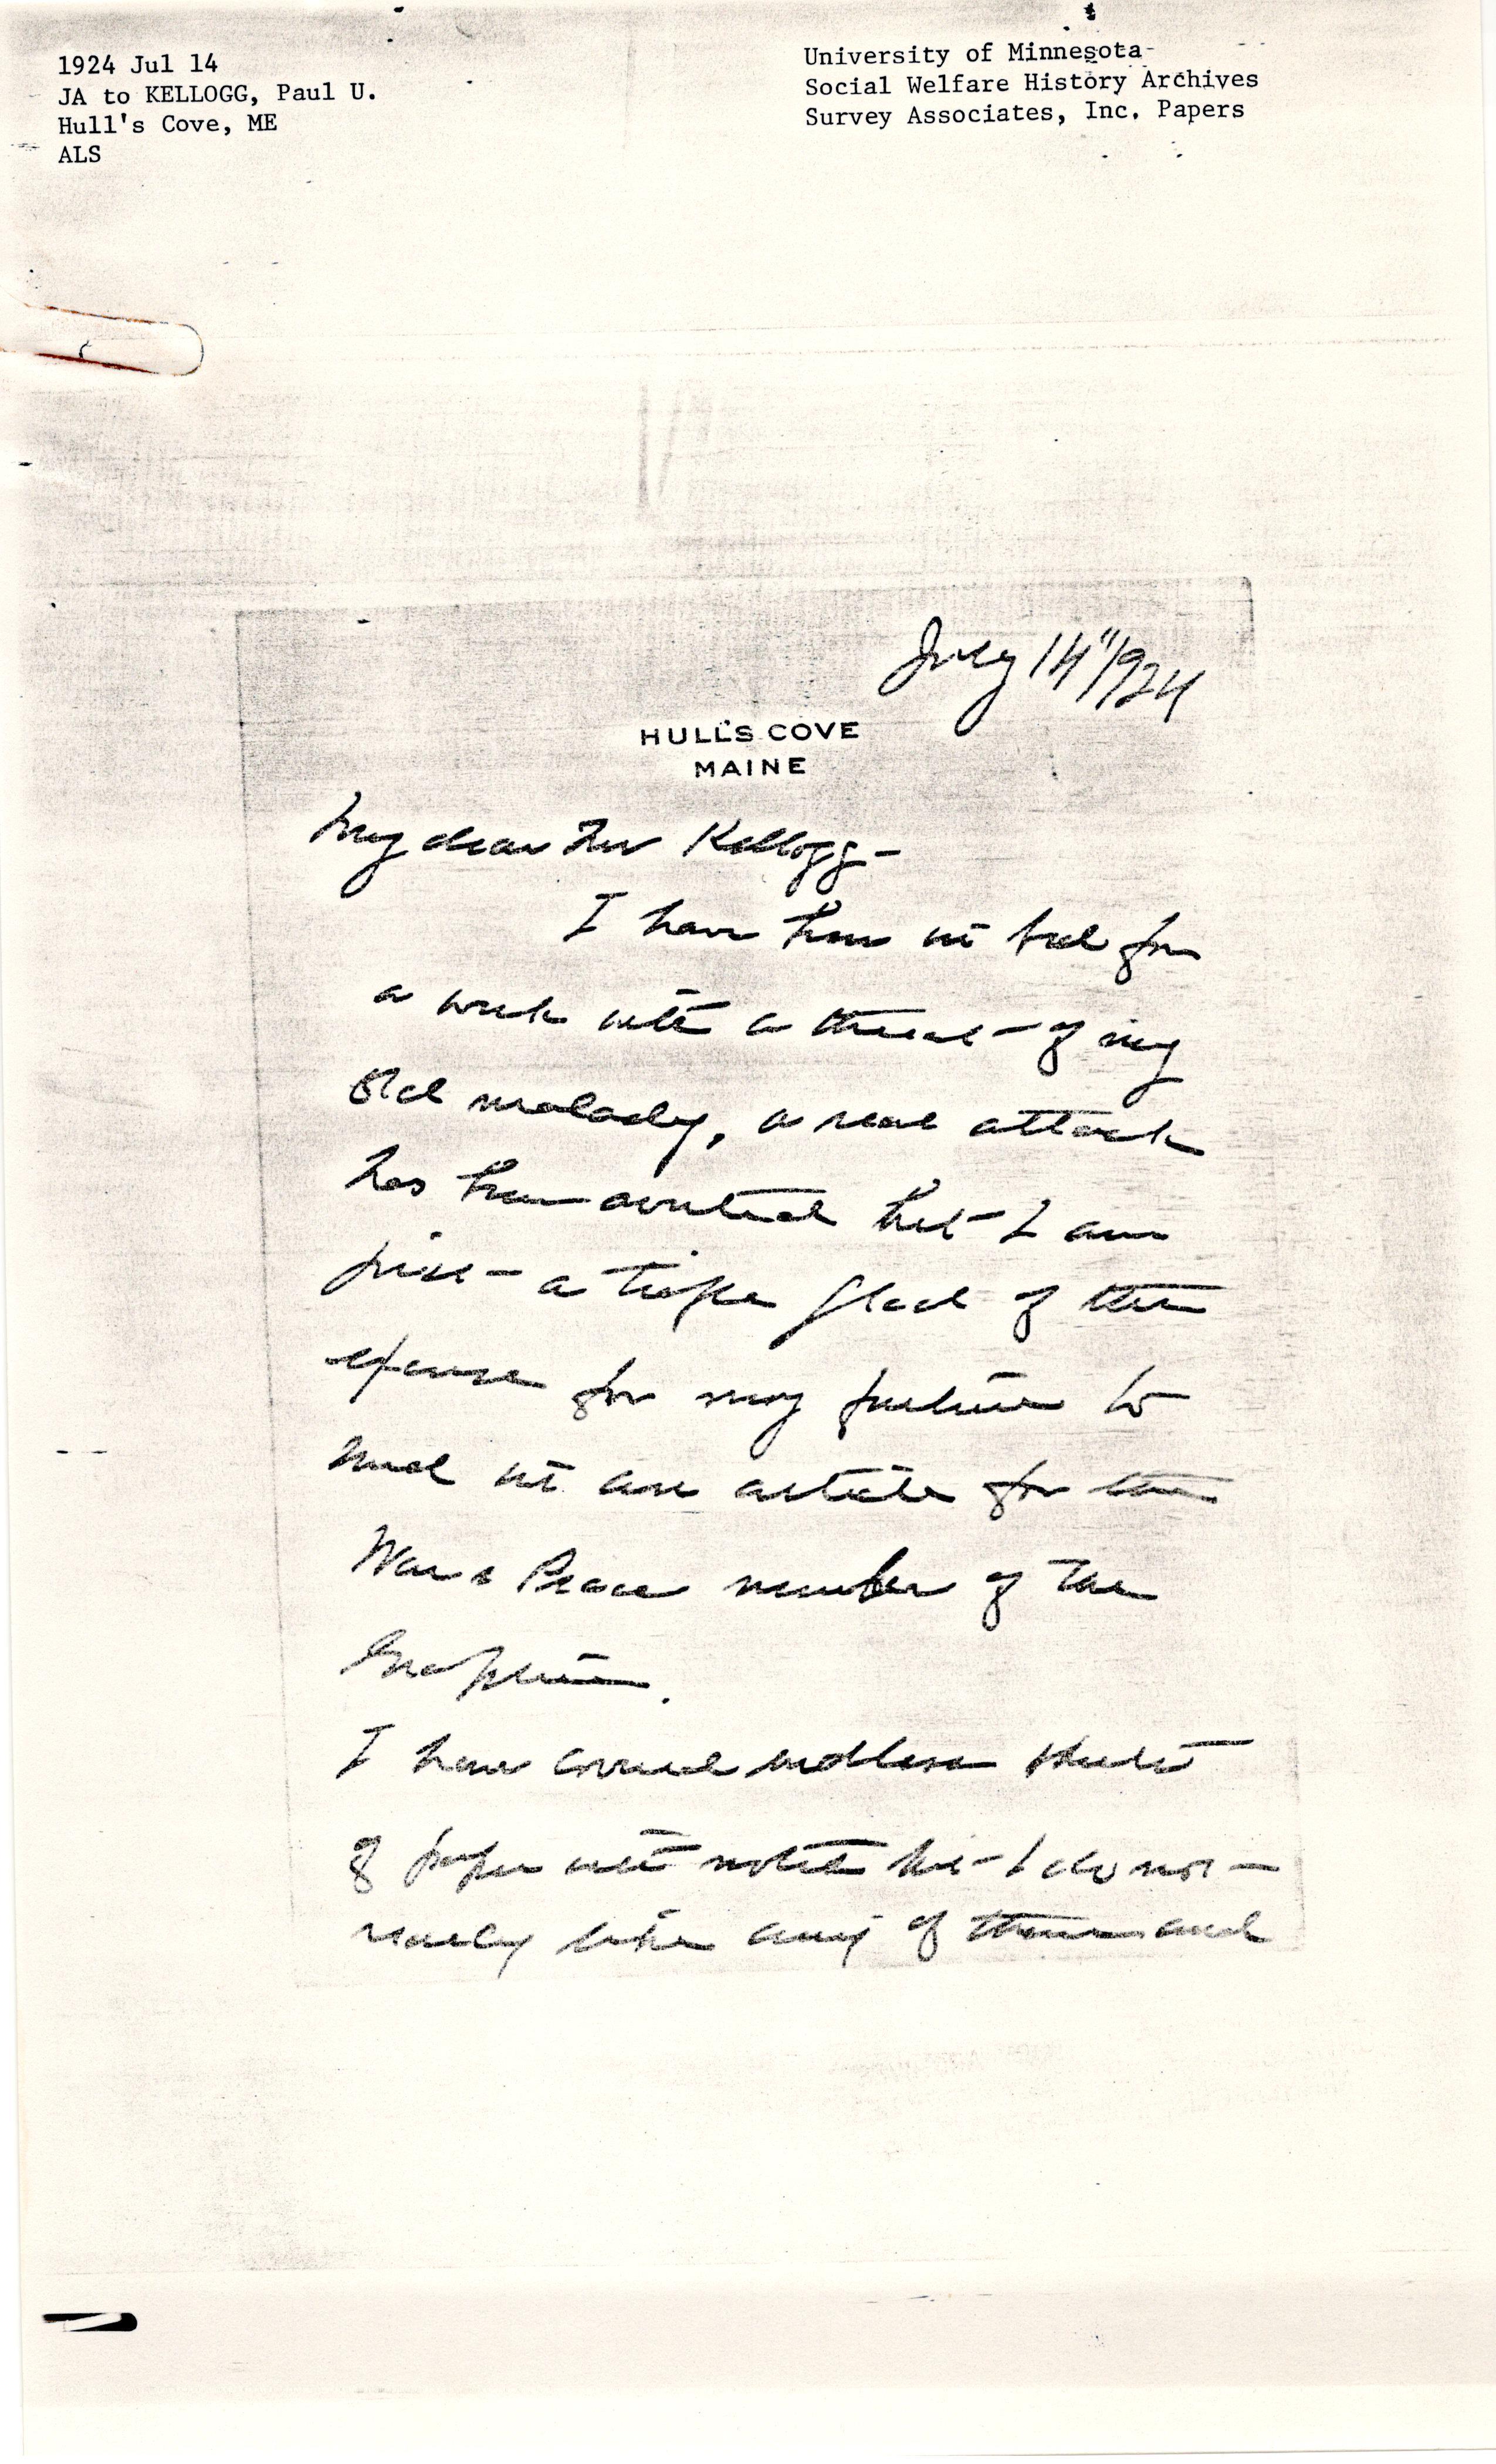 1924 Jul 14
JA to KELLOGG, Paul U.
Hull's Cove, ME
ALS
University of Minnesota
Social Welfare History Archives
Survey Associates, Inc. Papers
July 14"/1924
HULL'S COVE
MAINE
My dear Mr Kellogg –
I have been in bed for
a week with a threat of my
old malady, a real attack
has been averted but I am
just a trifle glad of the
excuse for my failure to
send in an article for the
War & Peace number of the
Graphic.
I have covered endless sheets
of paper with notes but I do not
really like any of them and